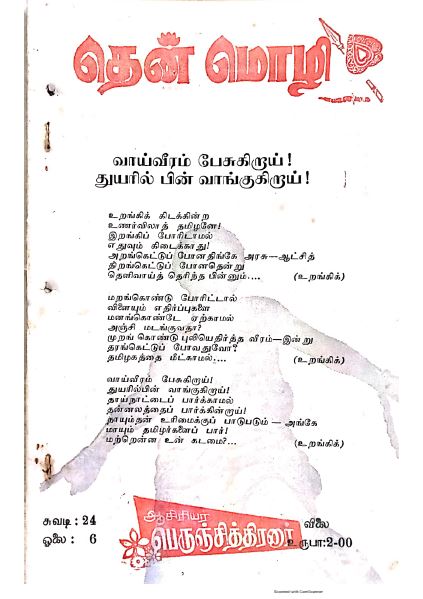 தென் மொழி
வாய்வீரம் பேசுகிறாய்!
துயரில் பின் வாங்குகிறாய்!
உறங்கிக் கிடக்கின்ற
உணர்விலாத் தமிழனே!
இறங்கிப் போரிடாமல்
எதுவும் கிடைக்காது!
அறங்கெட்டுப் போனதிங்கே அரசு—ஆட்சித்
திறங்கெட்டுப் போனதென்று
தெளிவாய்த் தெரிந்த பின்னும்.... (உறங்கிக்)
மறங்கொண்டு போரிட்டால்
விளையும் எதிர்ப்புகளை
மனங்கொண்டே ஏற்காமல்
அஞ்சி மடங்குவதா?
முறங் கொண்டு புலியெதிர்த்த வீரம்—இன்று
தரங்கெட்டுப் போவதுவோ?
தமிழகத்தை மீட்காமல்.... (உறங்கிக்)
வாய்வீரம் பேசுகிறாய்!
துயரில்பின் வாங்குகிறாய்!
தாய்நாட்டைப் பார்க்காமல்
தன்னலத்தைப் பார்க்கின்றாய்!
நாயும்தன் உரிமைக்குப் பாடுபடும் — அங்கே
மாயும் தமிழர்களைப் பார்!
மற்றென்ன உன் கடமை?... (உறங்கிக்)
சுவடி : 24
ஓலை : 6
ஆசிரியர்
பெருஞ்சித்திரனார்
விலை
உருபா:2-00
Scanned with CamScanner